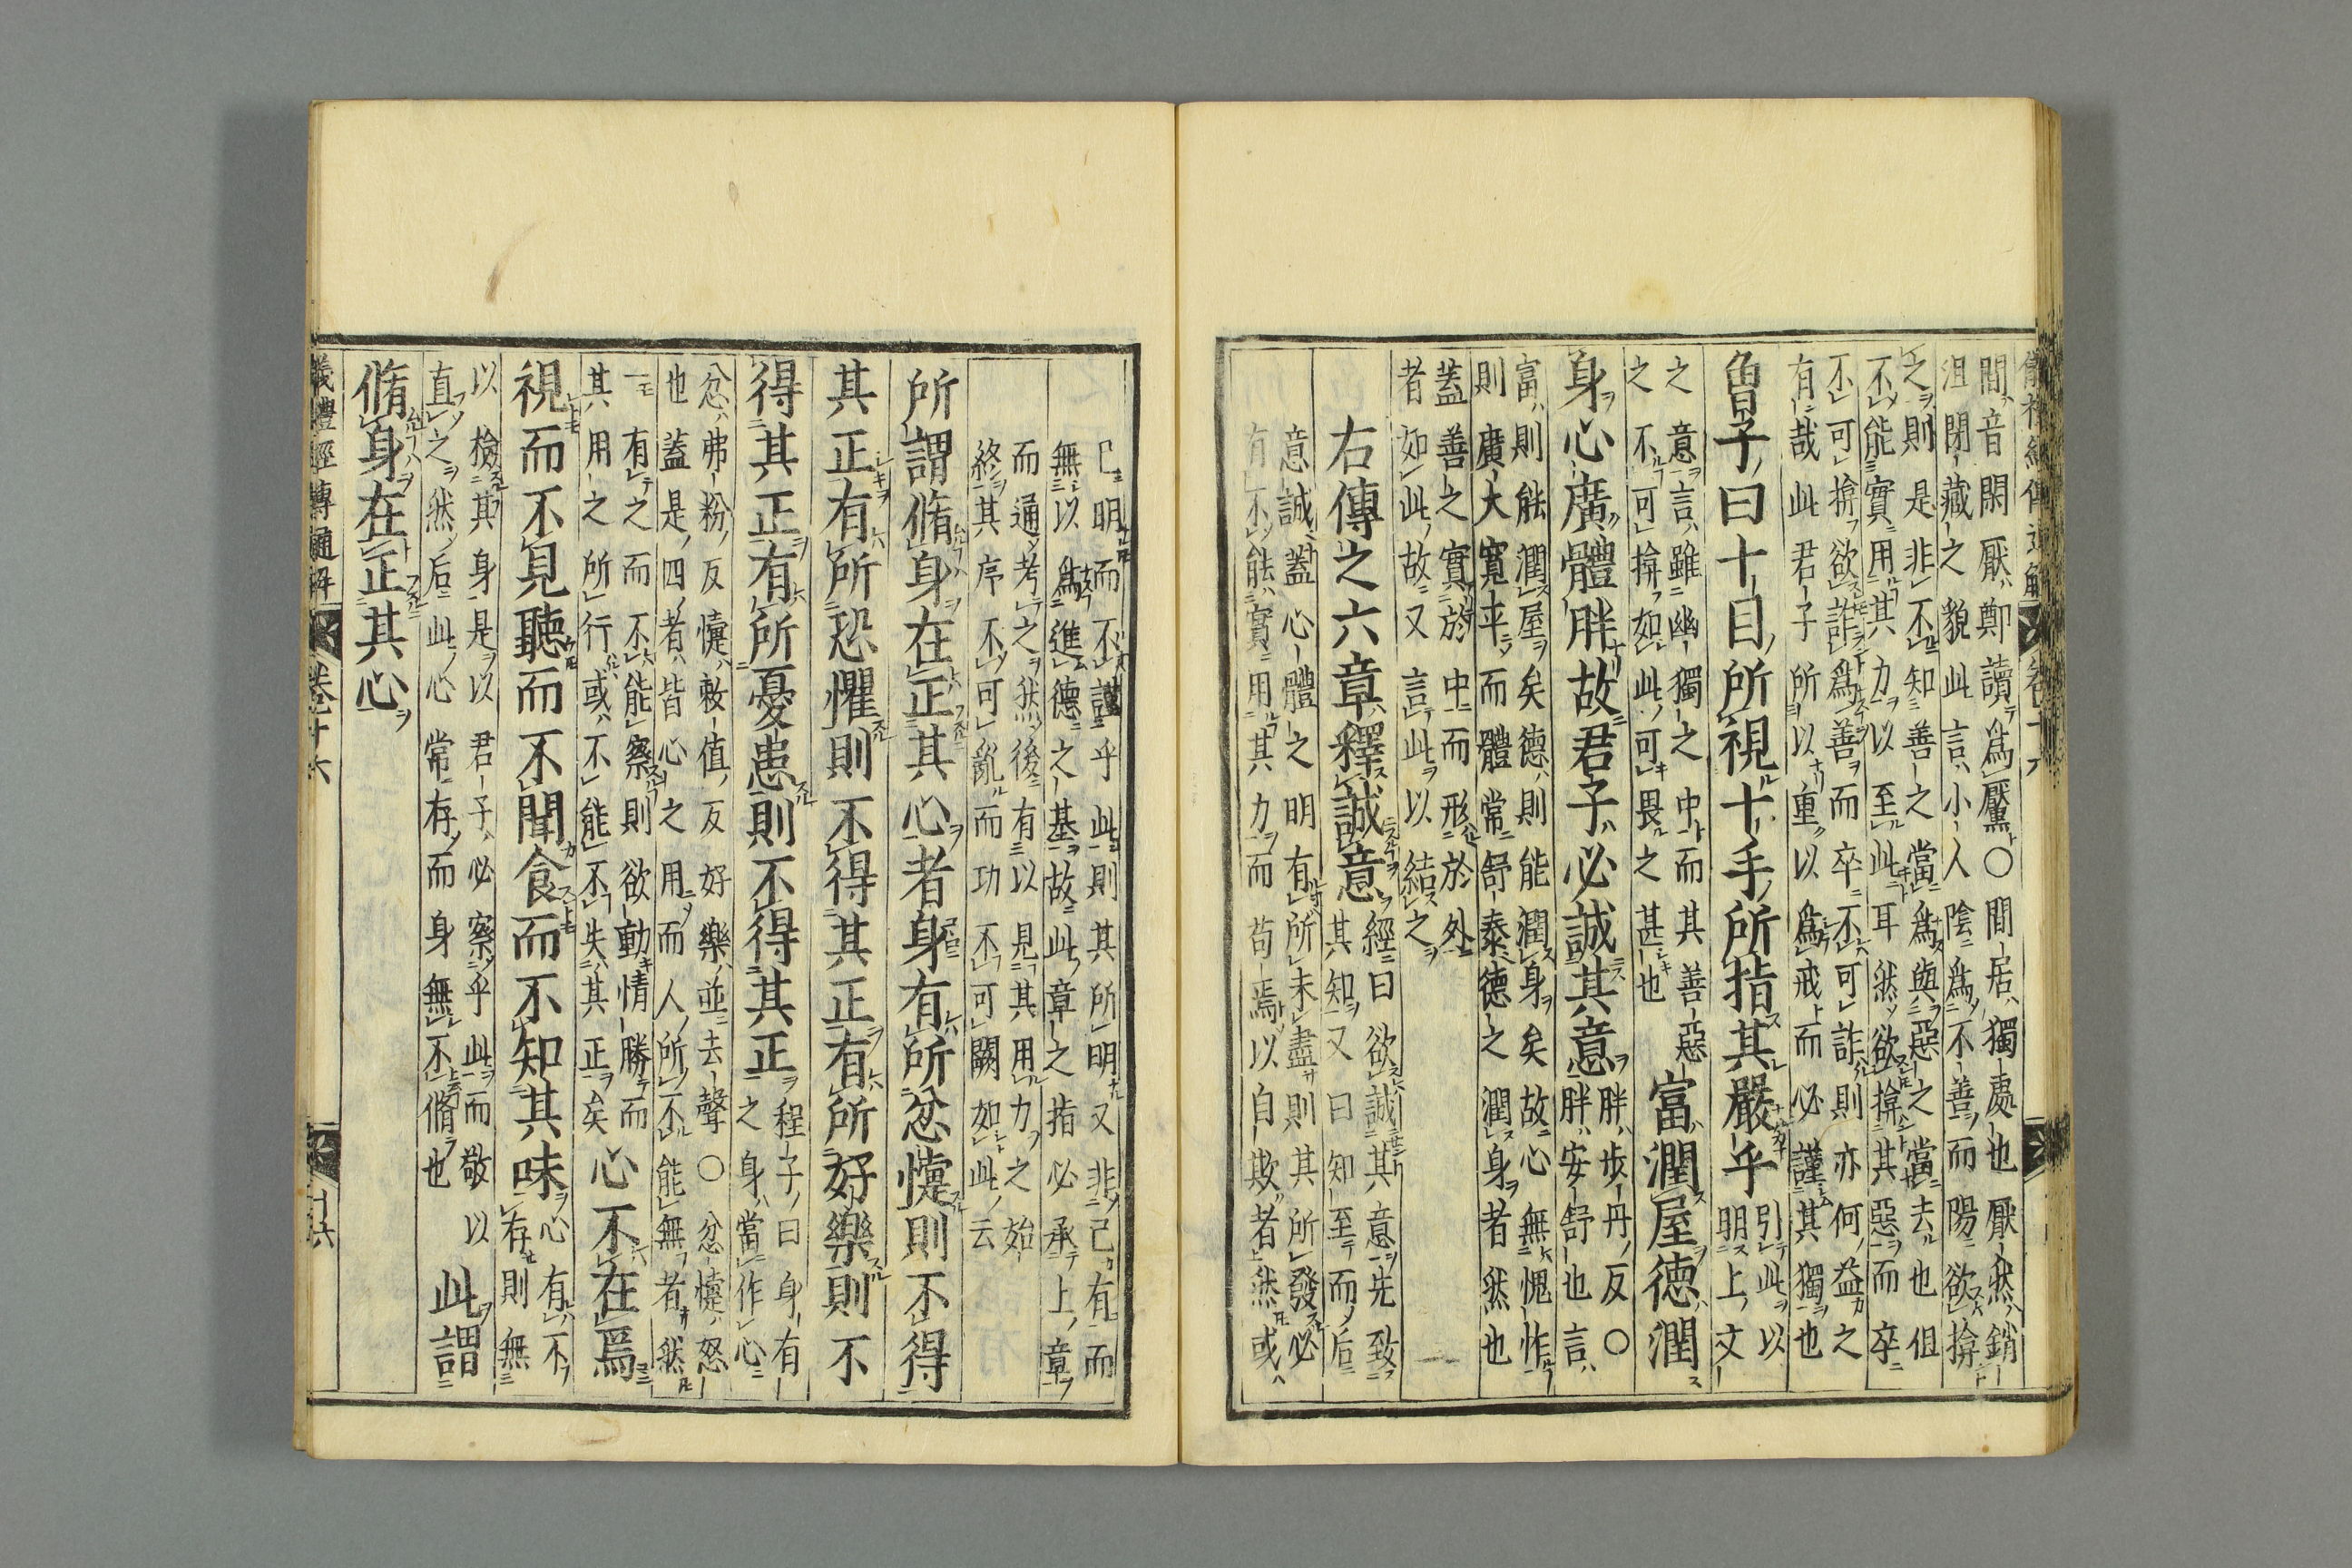 儀禮經傳通解 卷十六
間音閑厭鄭讀爲黶〇間居獨處也厭然銷
沮閉藏之貌此言小人陰爲不善而陽欲揜
之則是非不知善之當爲與惡之當去也但
不能實用其力以至此耳然欲揜其惡而卒
不可揜欲詐爲善而卒不可詐則亦何益之
有哉此君子所以重以爲戒而必謹其獨也
曾子曰十目所視十手所指其嚴乎
引此以
明上文
之意言雖幽獨之中而其善惡
之不可揜如此可畏之甚也
富潤屋德潤
身心廣體胖故君子必誠其意
胖步丹反〇
胖安舒也言
富則能潤屋矣德則能潤身矣故心無愧怍
則廣大寬平而體常舒泰德之潤身者然也
蓋善之實於中而形於外
者如此故又言此以結之
右傳之六章釋誠意
經曰欲誠其意先致
其知又曰知至而后
意誠蓋心體之明有所未盡則其所發必
有不能實用其力而苟焉以自欺者然或
已明而不謹乎此則其所明又非己有而
無以爲進德之基故此章之指必承上章
而通考之然後有以見其用力之始
終其序不可亂而功不可闕如此云
所謂脩身在正其心者身有所忿懥則不得
其正有所恐懼則不得其正有所好樂則不
得其正有所憂患則不得其正
程子曰身有
之身當作心
忿弗粉反懥敕值反好樂並去聲〇忿懥怒
也蓋是四者皆心之用而人所不能無者然
一有之而不能察則欲動情勝而
其用之所行或不能不失其正矣
心不在焉
視而不見聽而不聞食而不知其味
心有不
存則無
以檢其身是以君子必察乎此而敬以
直之然后此心常存而身無不脩也
此謂
脩身在正其心
儀禮經傳通解 卷十六